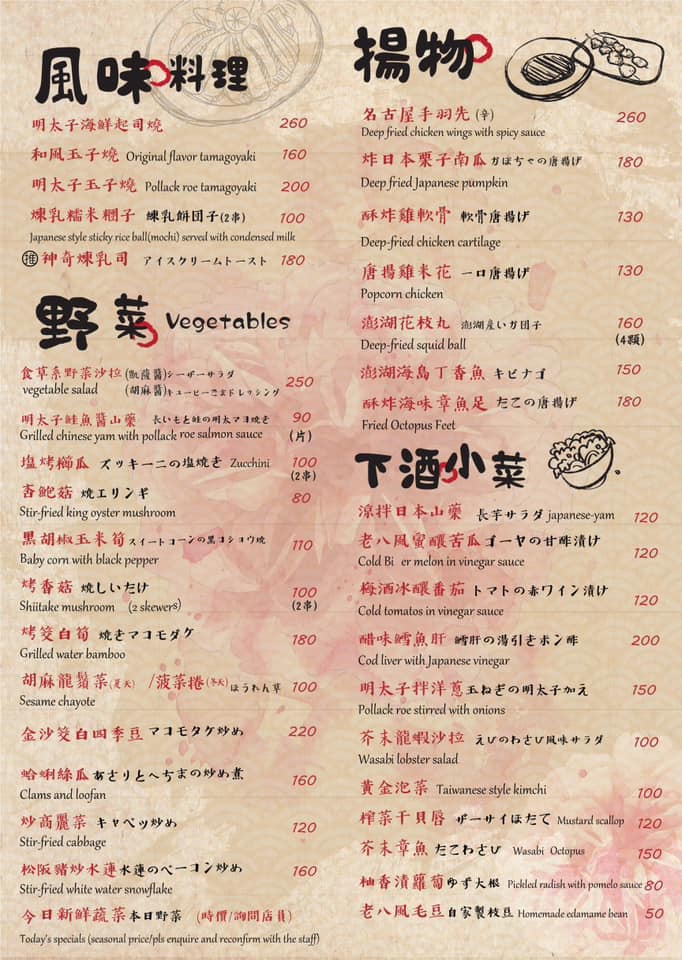 風味料理
明太子海鮮起司燒 260
和風玉子燒 Original flavor tamagoyaki 160
明太子玉子燒 Pollack roe tamagoyaki 200
煉乳糯米糰子 練乳餅団子(2串) 100
Japanese style sticky rice ball(mochi) served with condensed milk
推 神奇煉乳司 アイスクリームトースト 180
野菜 Vegetables
食草系野菜沙拉 (凱薩醬)シーザーサラダ
vegetable salad (胡麻醬)キューピーごまドレッシング 250
明太子鮭魚醬山藥 長いもと鮭の明太マヨ焼き 90
Grilled chinese yam with pollack roe salmon sauce (片)
塩烤櫛瓜 ズッキーニの塩焼き Zucchini 100
(2串)
杏鮑菇 焼エリンギ 80
Stir-fried king oyster mushroom
黑胡椒玉米筍 スイートコーンの黒コショウ焼 110
Baby corn with black pepper
烤香菇 焼しいたけ 100
Shiitake mushroom (2 skewers) (2串)
烤茭白筍 焼きマコモダケ 180
Grilled water bamboo
胡麻龍鬚菜(夏天) /菠菜捲(冬天) ほうれん草 100
Sesame chayote
金沙茭白四季豆 マコモタケ炒め 220
蛤蜊絲瓜 あさりとへちまの炒め煮 160
Clams and loofan
炒高麗菜 キャベツ炒め 120
Stir-fried cabbage
松阪豬炒水蓮 水蓮のベーコン炒め 160
Stir-fried white water snowflake
今日新鮮蔬菜 本日野菜 (時價/詢問店員)
Today's specials (seasonal price/pls enquire and reconfirm with the staff)
揚物
名古屋手羽先 (辛) 260
Deep fried chicken wings with spicy sauce
炸日本栗子南瓜 かぼちゃの唐揚げ 180
Deep fried Japanese pumpkin
酥炸雞軟骨 軟骨唐揚げ 130
Deep-fried chicken cartilage
唐揚雞米花 一口唐揚げ 130
Popcorn chicken
澎湖花枝丸 澎湖産いか団子 160
Deep-fried squid ball (4顆)
澎湖海島丁香魚 キビナゴ 150
酥炸海味章魚足 たこの唐揚げ 180
Fried Octopus Feet
下酒小菜
涼拌日本山藥 長芋サラダ japanese-yam 120
老八風蜜釀苦瓜 ゴーヤの甘酢漬け 120
Cold Bi er melon in vinegar sauce
梅酒冰釀番茄 トマトの赤ワイン漬け 120
Cold tomatos in vinegar sauce
醋味鱈魚肝 鱈肝の湯引きポン酢 200
Cod liver with Japanese vinegar
明太子拌洋蔥 玉ねぎの明太子加え 150
Pollack roe stirred with onions
芥末龍蝦沙拉 えびのわさび風味サラダ 100
Wasabi lobster salad
黃金泡菜 Taiwanese style kimchi 100
榨菜干貝唇 ザーサイほたて Mustard scallop 120
芥末章魚 たこわさび Wasabi Octopus 150
柚香漬蘿蔔 ゆず大根 Pickled radish with pomelo sauce 80
老八風毛豆 自家製枝豆 Homemade edamame bean 50